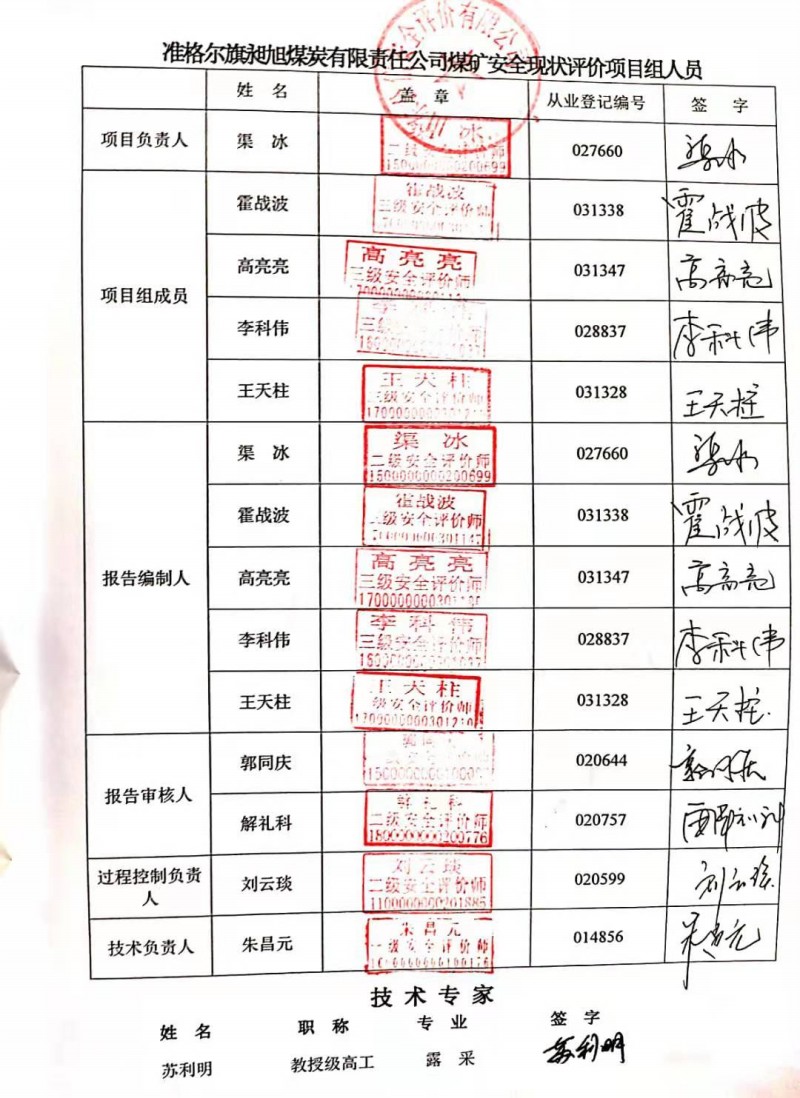 准格尔旗昶旭煤炭有限责任公司煤矿安全现状评价项目组人员
姓 名 盖 章 从业登记编号 签 字
项目负责人 渠 冰 冰 二级安全评价师 1500000000200699 027660 渠冰
项目组成员
霍战波 霍战波 三级安全评价师 031338 霍战波
高亮亮 高亮亮 三级安全评价师 031347 高亮亮
李科伟 三级 028837 李科伟
王天柱 王天柱 三级安全评价师 031328 王天柱
报告编制人
渠 冰 渠 冰 二级安全评价师 1500000000200699 027660 渠冰
霍战波 霍战波 级安全评价师 031338 霍战波
高亮亮 高亮亮 三级安全评价师 031347 高亮亮
李科伟 李科伟 三级安全评价师 028837 李科伟
王天柱 王天柱 级安全评价师 1700000000301210 031328 王天柱
报告审核人
郭同庆 020644 郭同庆
解礼科 解礼科 二级安全评价师 1800000000200776 020757 解礼科
过程控制负责人 刘云琰 刘云琰 二级安全评价师 1100000000201885 020599 刘云琰
技术负责人 朱昌元 朱昌元 一级安全评价师 014856 朱昌元
技 术 专 家
姓 名 职 称 专 业 签 字
苏利明 教授级高工 露 采 苏利明